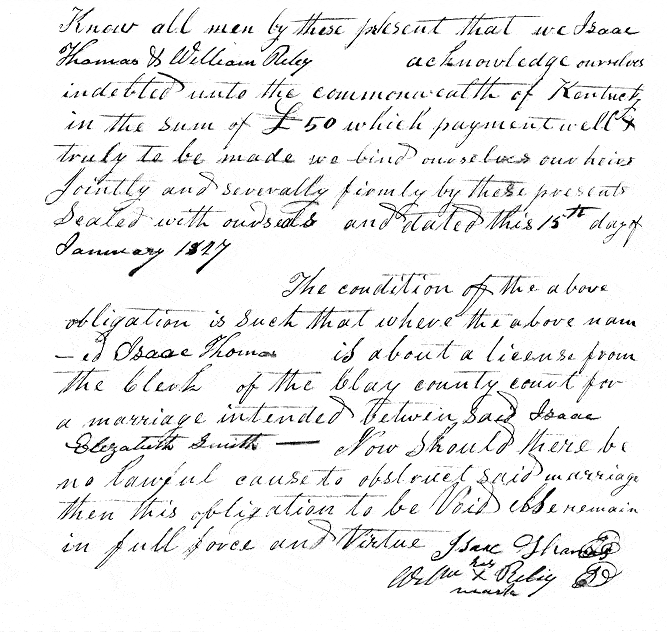 Know all men by these present that we Isaac
Thomas & William Riley acknowledge ourselves
indebted unto the commonwealth of Kentucky
in the sum of £50 which payment well &
truly to be made we bind ourselves our heirs
Jointly and severally firmly by these presents
Sealed with our seals and dated this 15th day of
January 1827
The condition of the above
obligation is such that where the above nam
– ed Isaac Thomas is about a license from
the Clerk of the Clay county court for
a marriage intended betwen said Isaac
Elezabeth Smith — Now should there be
no lawful cause to obstruct said marriage
then this obligation to be Void else remain
in full force and Virtue Isaac Thomas
Wilm his x Riley
mark